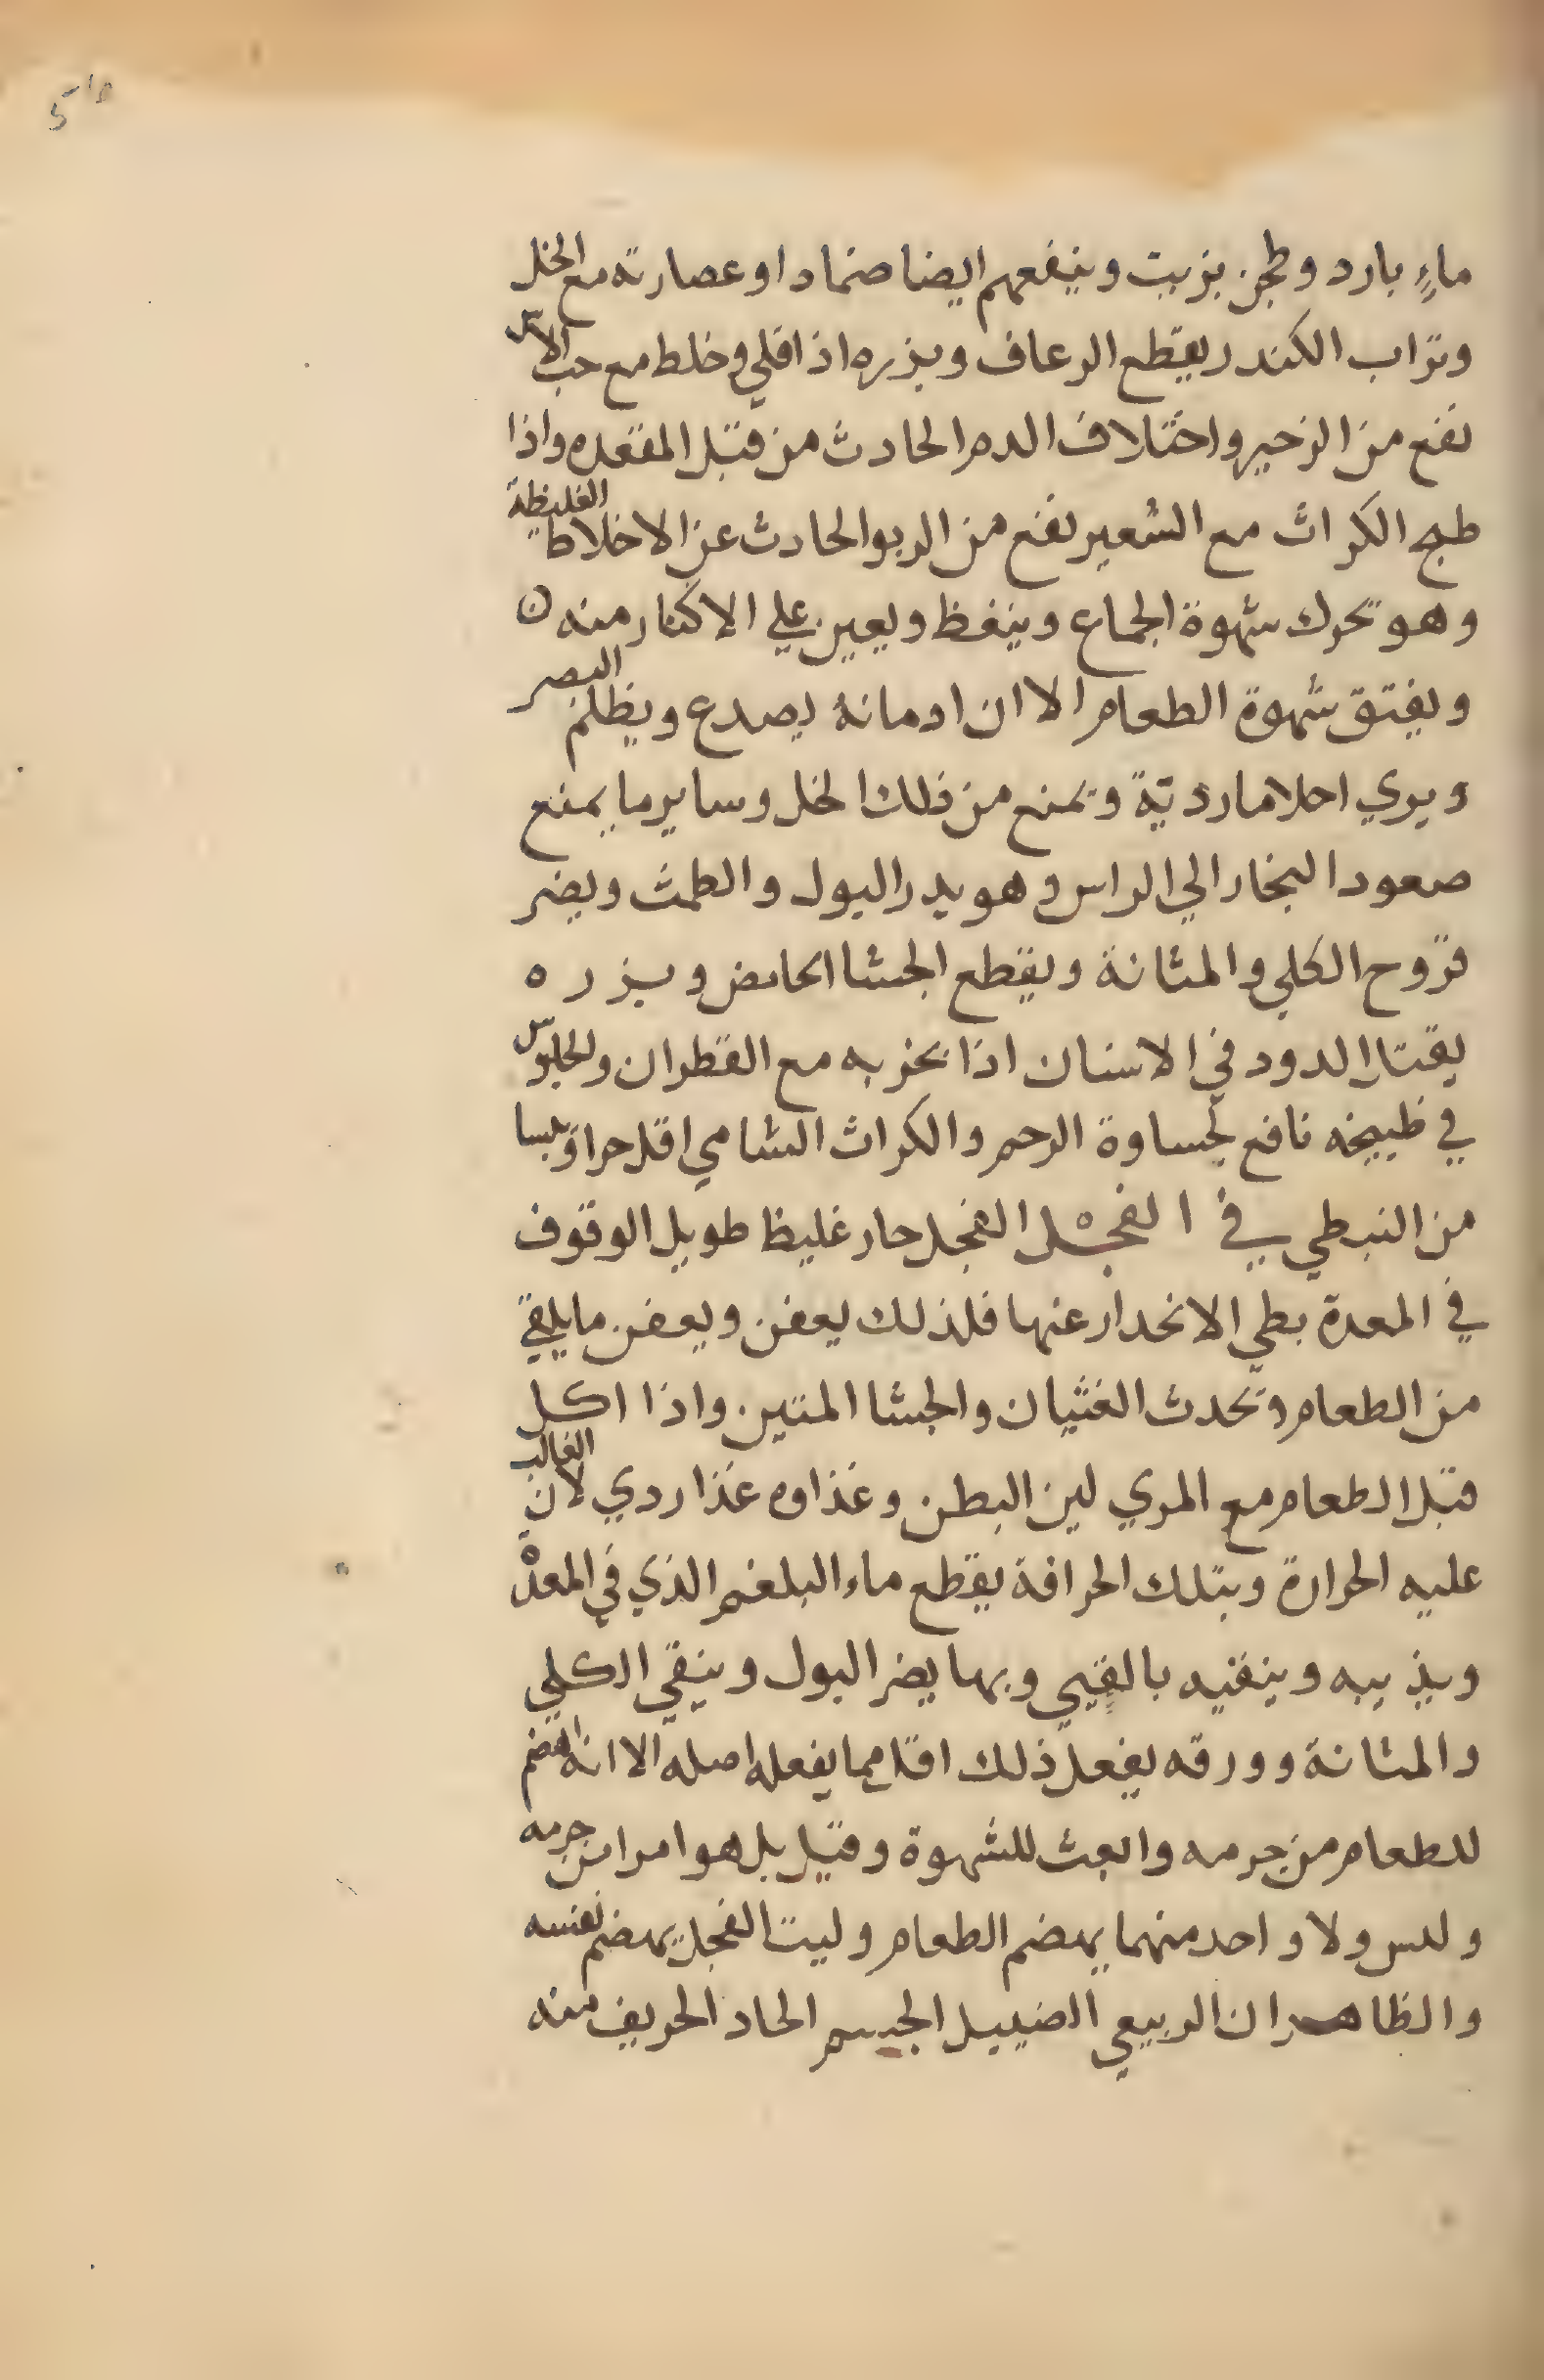 ماءٍ بارد وطجن بزيت وينفعهم ايضا ضمادا وعصارته مع الخل
وتراب الكندر يقطع الرعاف وبزره اذا قلي وخلط مع حب الاس
نفع من الزحير واختلاف الدم الحادث من قبل المقعده واذا
طبخ الكراث مع الشعير نفع من الربو الحادث عن الاخلاط الغليظة
وهو تحرك شهوة الجماع وينغظ ويعين علي الاكثار منه
ويفتق شهوة الطعام الا ان ادمانه يصدع ويظلم البصر
ويري احلاما رديّة ويمنع من ذلك الخل وساير ما يمنع
صعود البخار الي الراس وهو يدر البول والطمث ويضر
قروح الكلي والمثانة ويقطع الجشا الحامض وبزره
يقتل الدود في الاسنان اذا بخر به مع القطران والجلوس
في طبيخه نافع لجساوة الرحم والكراث الشامي اقل حرا ويبسا
من النبطي في الفجل الفجل حار غليظ طويل الوقوف
في المعدة بطي الانحدار عنها فلذلك يعفن ويعفن ما يلقي
من الطعام وتحدث الغثيان والجشا المنتن واذا اكل
قبل الطعام مع المري لين البطن وغذاوه غذا ردي لان الغالب
عليه الحرارة وبتلك الحرافة يقطع ماء البلغم الذي في المعدة
ويذيبه وينقيه بالقيي وبها يضر البول وينقي الكلي
والمثانة وورقه يفعل ذلك اقل مما يفعله اصله الا انه اهضم
للطعام من جرمه وابعث للشهوة وقيل بل هو امرا من جرمه
وليس ولا واحد منهما يهضم الطعام وليت الفجل يهضم نفسه
والظاهر ان الربيعي الضييل الجسم الحاد الحريف منه